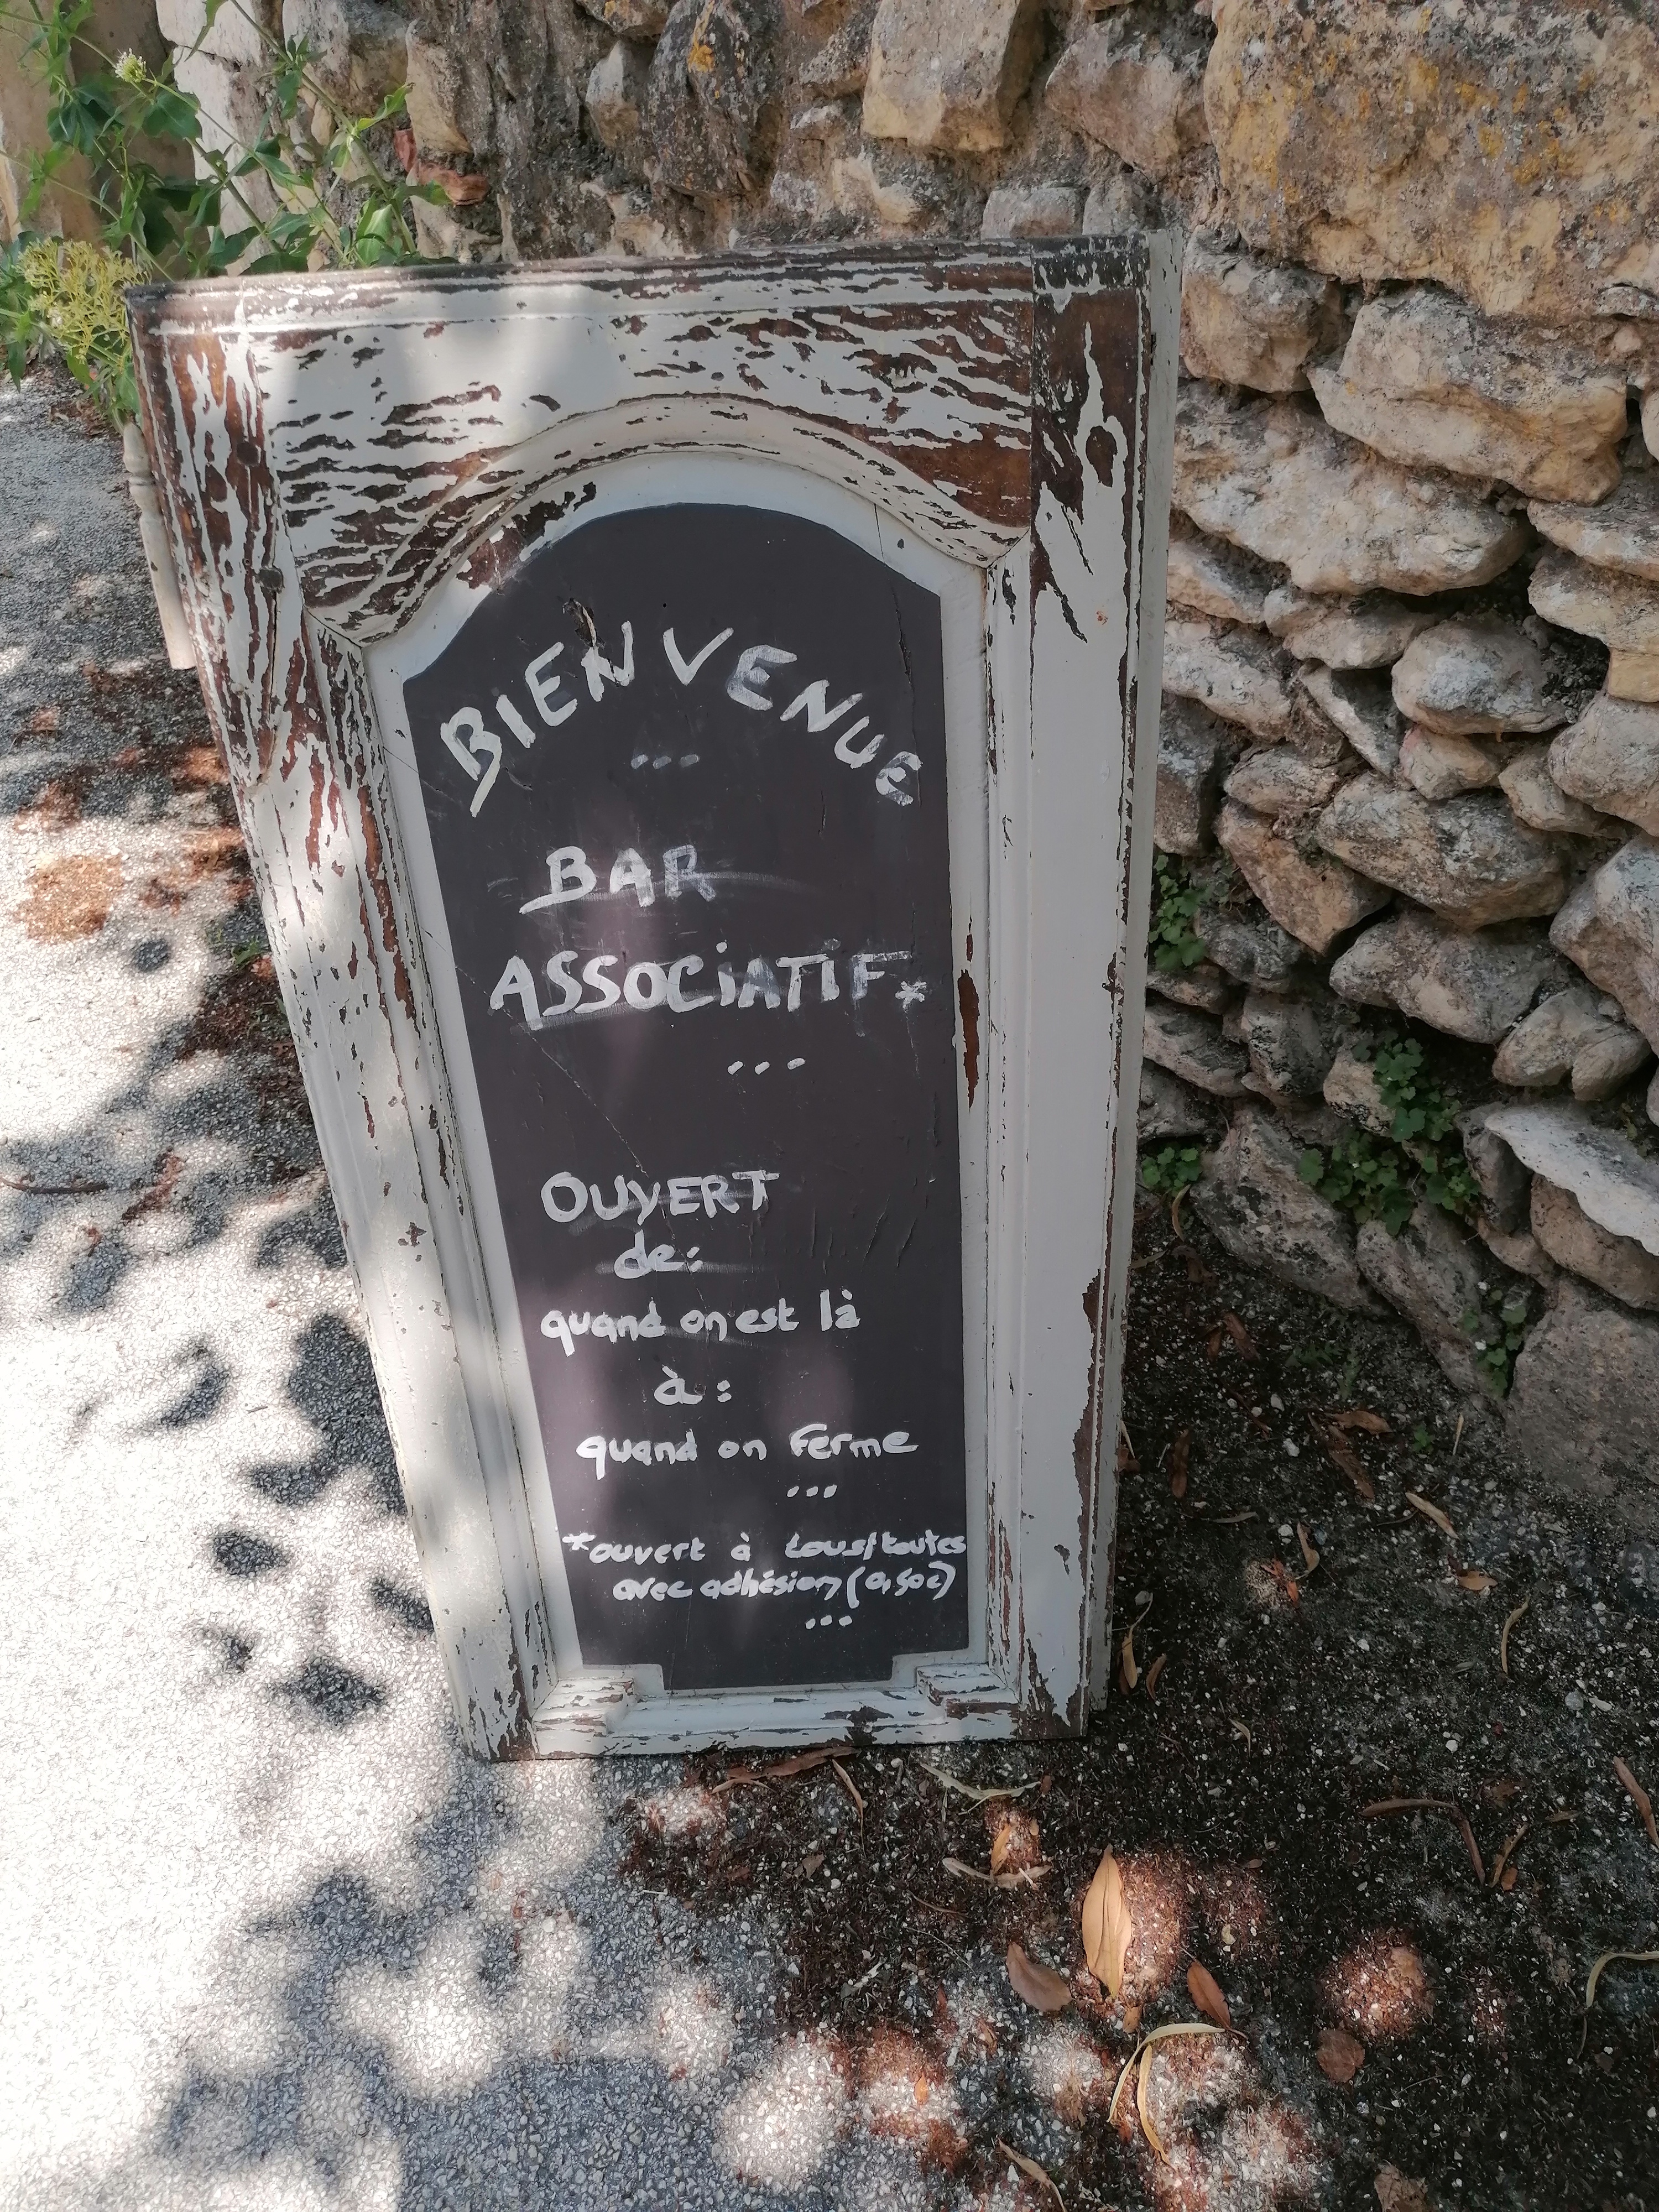 BIENVENUE
...
BAR
ASSOCIATIF*
...
OUVERT
de:
quand on est là
à:
quand on ferme
...
*ouvert à tous/toutes
avec adhésion (0,50€)
...